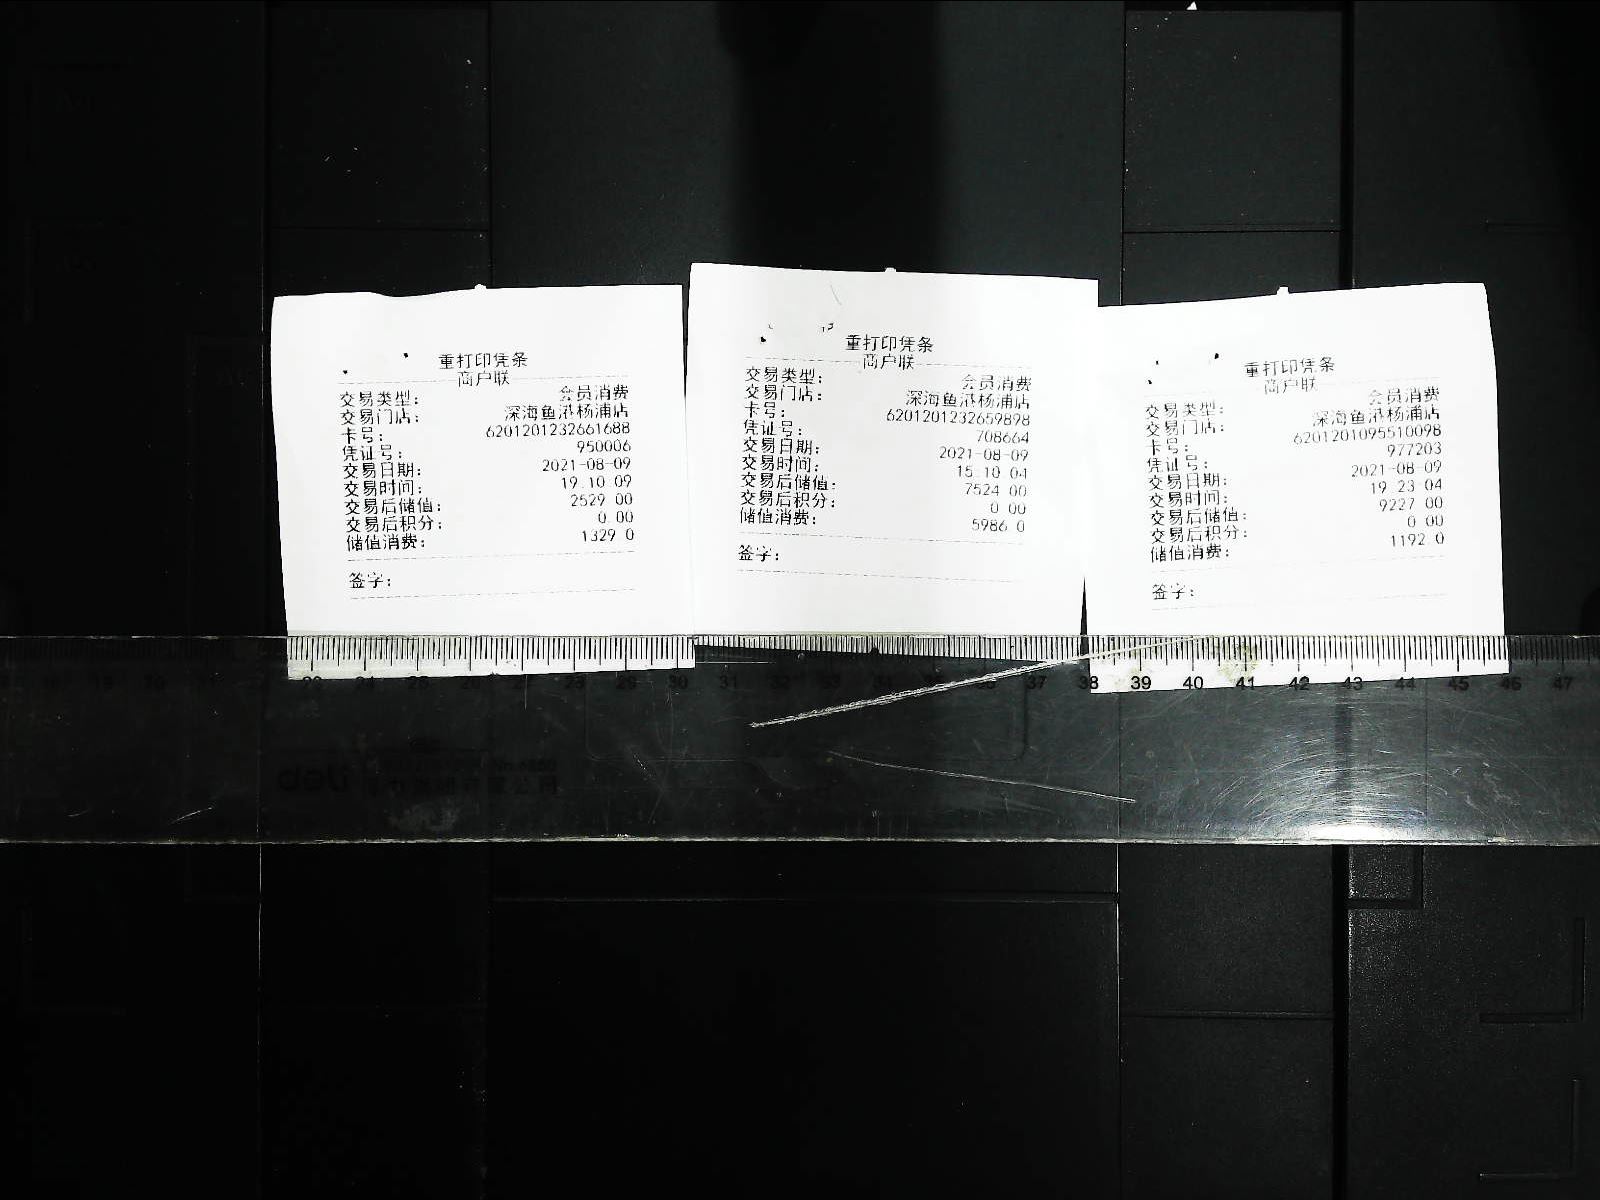 重打印凭条
商户联
交易类型： 会员消费
交易门店： 深海鱼港杨浦店
卡号： 6201201232661688
凭证号： 950006
交易日期： 2021-08-09
交易时间： 19 10 09
交易后储值： 2529 00
交易后积分： 0 00
储值消费： 1329 0
签字：
重打印凭条
商户联
交易类型： 会员消费
交易门店： 深海鱼港杨浦店
卡号： 6201201232659898
凭证号： 708664
交易日期： 2021-08-09
交易时间： 15 10 04
交易后储值： 7524 00
交易后积分： 0 00
储值消费： 5986 0
签字：
重打印凭条
商户联
交易类型： 会员消费
交易门店： 深海鱼港杨浦店
卡号： 6201201095510098
凭证号： 977203
交易日期： 2021-08-09
交易时间： 19 23 04
交易后储值： 9227 00
交易后积分： 0 00
储值消费： 1192 0
签字：
28 29 30 31 32 33 36 37 38 39 40 41 42 43 44 45 46 47
deli